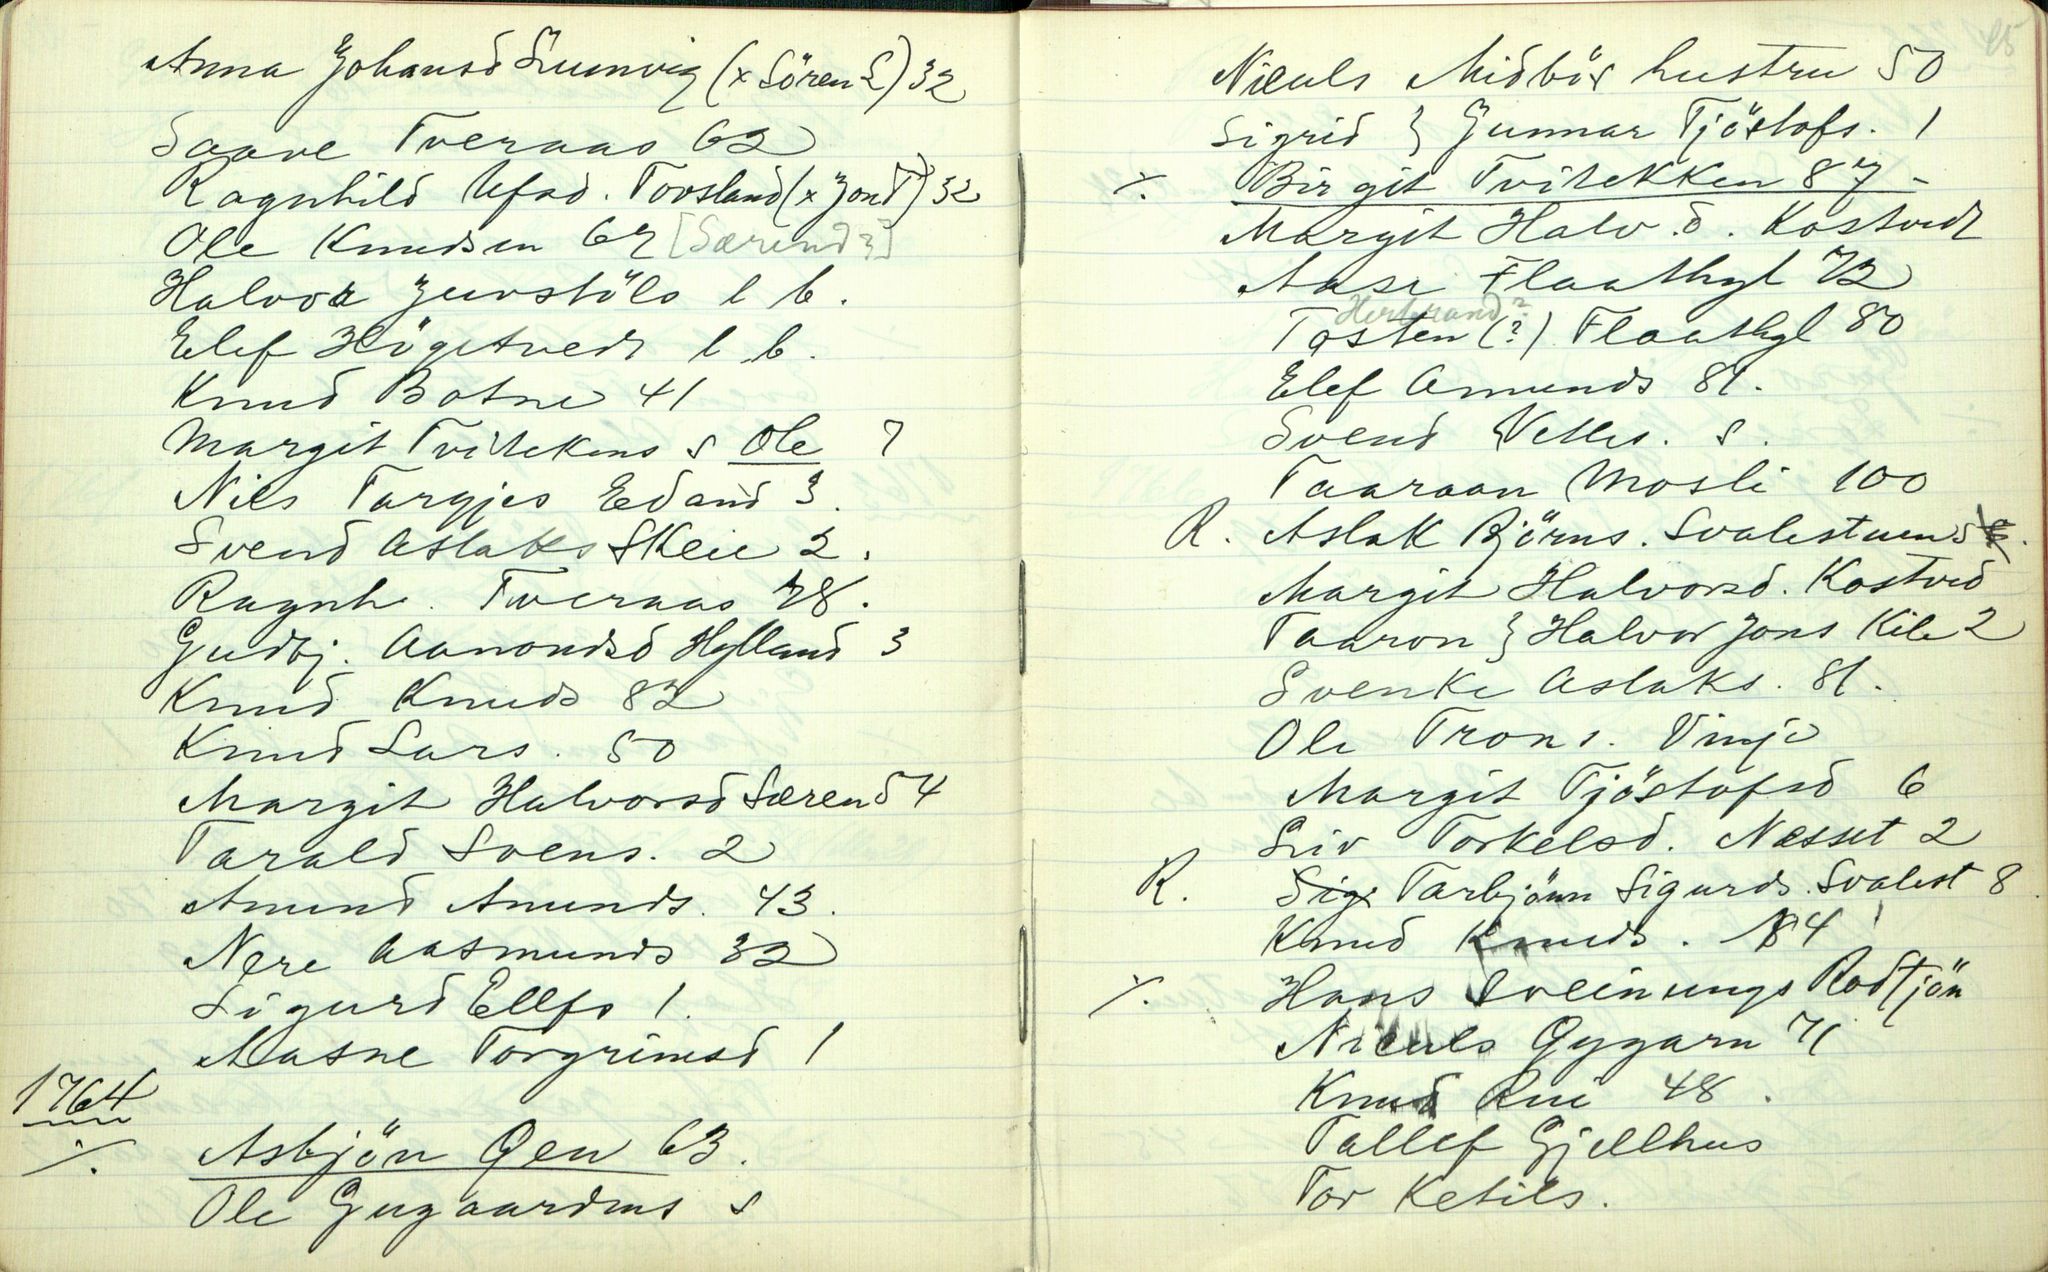 Anna Johansd Lunnvig (x Sören L) 32
Saave Tveraas 62
Ragnhild Ufsd. Tovsland (x Jon T) 32
Ole Knudsen 67 [Særend 3]
Halvor Juvstöls l b.
Elef Högetvedt l b.
Knud Botne 41
Margit Tvitekens s Ole 7
Nils Targjes Edand 3.
Svend Aslaks Skeie 2.
Ragnh. Tveraas 78.
Gudbj. Aamondsd Hylland 3
Knud Knuds 82
Knud Lars. 50
Margit Halvorsd Særend 4
Tarald Svens. 2
Amund Amunds. 43.
Nere Aasmunds 32
Sigurd Ellfs 1.
Aasne Torgrimsd 1
1764
·/. Asbjön Qen 63.
Ole Gugaardens s
85
Niculs Midbös hustru 50
Sigrid } Gunnar Tjöstofs. 1
·/. Birgit Tvitekken 87 -
Margit Halv.d. Kostvedt
Aase Flaathyl 72
Herbrand?
Tosten (?) Flaathyl 80
Elef Amunds 81.
Svend Vetles. s.
Taaraan Mosli 100
R. Aslak Björns. Svalestuen 5
Margit Halvorsd. Kostved
Taaron } Halvor Jons Kile 2
Svenke Aslaks. 81.
Ole Trons. Vinje
Margit Tjöstofsd 6
Liv Torkelsd. Nesset 2
R. Sig Tarbjönn Sigurds. Svalest 8
Knud Knuds. 84
·/. Hans Sveinungs Rodtjön
Niculs Qygarn 71
Knud Rui 48.
Tallef Gjellhus
Tor Ketils.